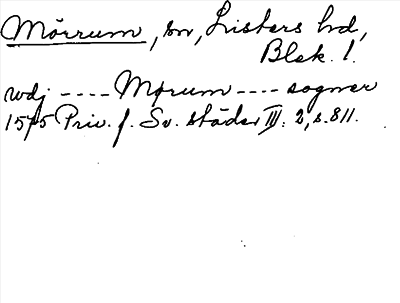 Mörrum, sn, Listers hd,
Blek. l.
wdj ---- Mørum ---- sogner
1575 Priv. f. Sv. städer III: 2, s. 811.